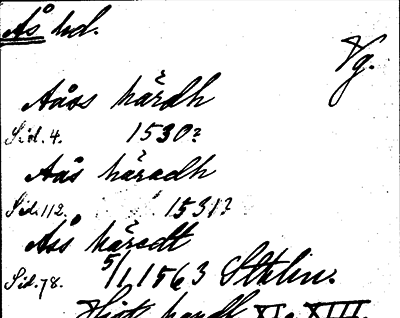 Ås hd.
Vg.
Aåss härdh
Sid. 4. 1530?
Aås häradh
Sid. 112. 1531?
Åss häradt
Sid. 78. 5/1 1563 Sthlm.
Hist. handl. XI o XIII.